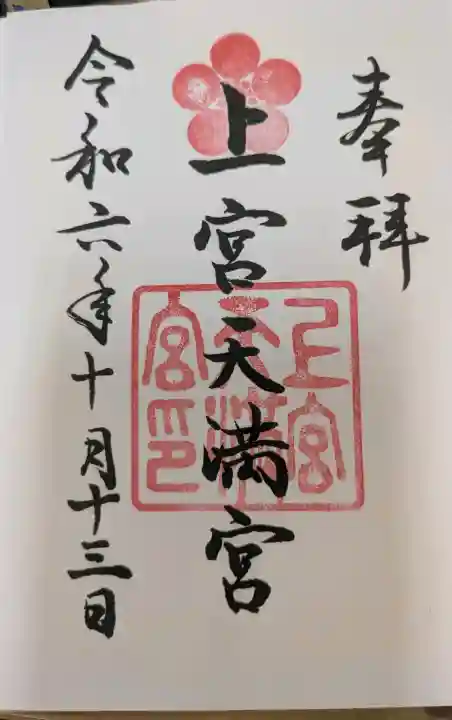 奉拝
上宮天満宮
令和六年十月十三日
上宮
天満
宮印